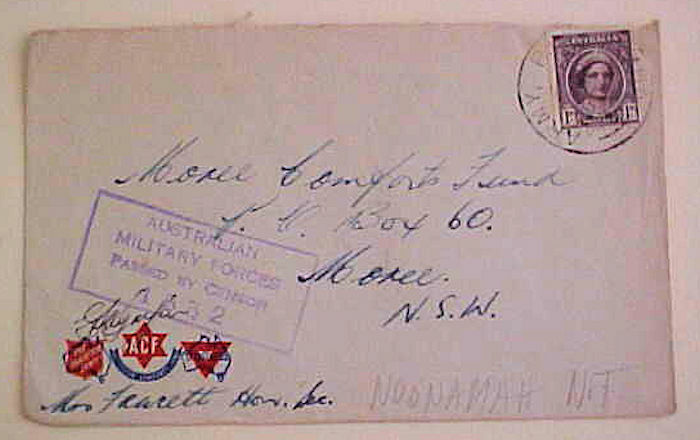 AUSTRALIA
1½ 1½
ARMY
Moree Comforts Fund
P. O. Box 60.
Moree.
N.S.W.
AUSTRALIAN
MILITARY FORCES
PASSED BY CENSOR
ACF
Mrs Fawcett Hon. Sec.
NOONAMAH N.T